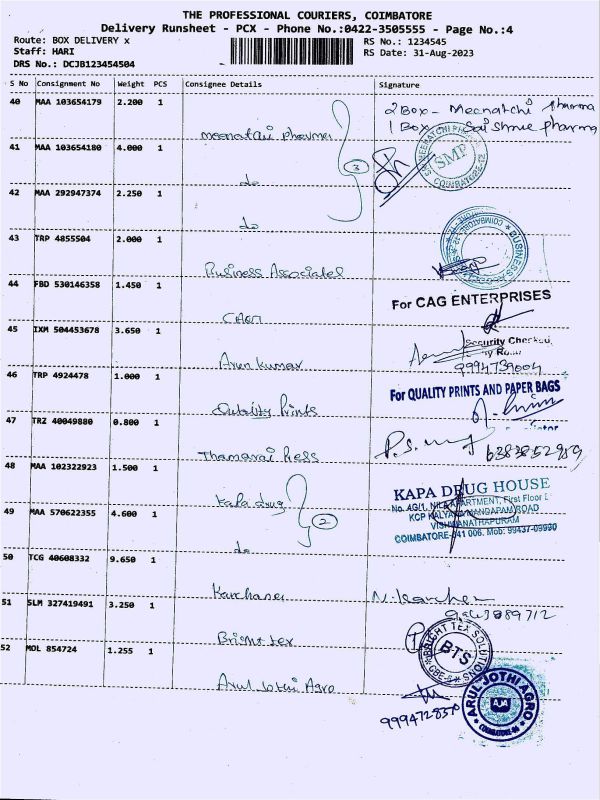 THE PROFESSIONAL COURIERS, COIMBATORE
Delivery Runsheet - PCX - Phone No.:0422-3505555 - Page No.:4
Route: BOX DELIVERY x RS No.: 1234545
Staff: HARI RS Date: 31-Aug-2023
DRS No.: DCJB123454504
S No Consignment No Weight PCS Consignee Details Signature
40 MAA 103654179 2.200 1 2 Box - Meenatchi pharma
Meenatchi pharma 1 Box - Sai Shree pharma
41 MAA 103654180 4.000 1 SMP
do 3 COIMBATORE-12
42 MAA 292947374 2.250 1
do
43 TRP 4855504 2.000 1 BUSINESS
Business Associates
44 FBD 530146358 1.450 1 For CAG ENTERPRISES
CAG
45 IXM 504453678 3.650 1 Security Checked
Arun kumar 9994739004
46 TRP 4924478 1.000 1 For QUALITY PRINTS AND PAPER BAGS
Quality Prints
47 TRZ 40049880 0.800 1 6383852959
Thamarai Press
48 MAA 102322923 1.500 1 KAPA DRUG HOUSE
Kapa drug No. 4G/1, NILA APARTMENT, First Floor
KCP KALYANA MANDAPAM ROAD
49 MAA 570622355 4.600 1 VISHWANATHAPURAM
2 COIMBATORE-641 006. Mob: 99437-09990
do
50 TCG 40608332 9.650 1
Karchaner
51 SLM 327419491 3.250 1 BRIGHT TEX SOLUTIONS
BTS
52 MOL 854724 1.255 1
Arul Jothi Agro ARUL JOTHI AGRO
AJA
COIMBATORE